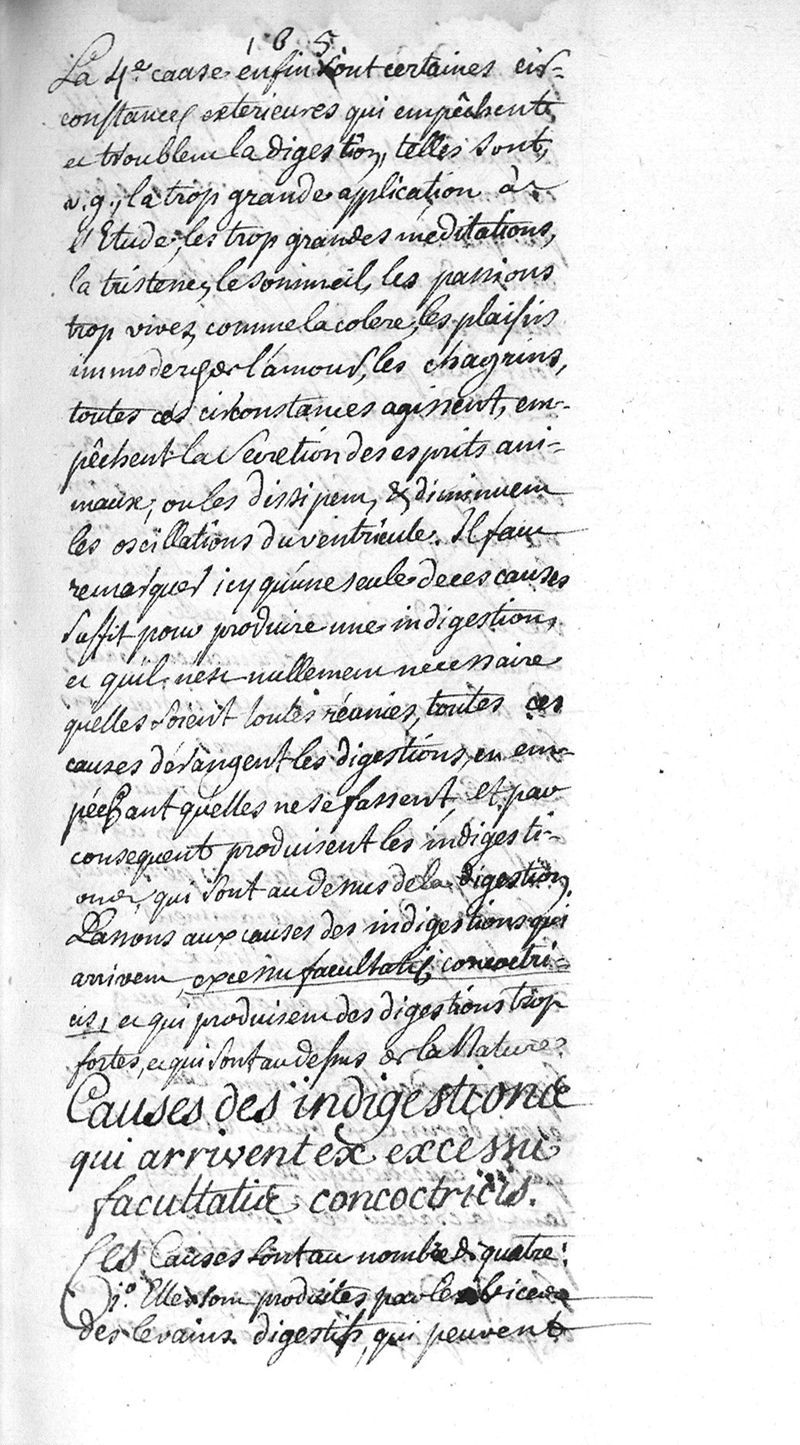 105
La 4e. cause enfin sont certaines cir-
constances exterieures qui empêchent
et troublent la digestion, telles sont,
v. g., la trop grande application à
l'Etude, les trop grandes meditations,
la tristesse, le sommeil, les passions
trop vives, comme la colere, les plaisirs
immoderés de l'amour, les chagrins,
toutes ces circonstances agissent, em-
pêchent la Secretion des esprits ani-
maux, ou les dissipent, & diminuent
les oscillations du ventricule. Il faut
remarquer icy qu'une seule de ces causes
Suffit pour produire une indigestion,
et qu'il n'est nullement necessaire
quelles soient toutes réunies, toutes ces
causes dérangent les digestions, en em-
pêchant quelles ne se fassent, et par
consequent produisent les indigesti-
ons, qui sont au dessus de la digestion.
Passons aux causes des indigestions qui
arrivent, excessu facultatis concoctri-
cis, et qui produisent des digestions trop
fortes, et qui sont au dessus de la Nature.
Causes des indigestions
qui arrivent ex excessu
facultatis concoctricis.
Ces Causes sont au nombre de quatre:
1°. Elles sont produites par le vice
des levains digestifs, qui peuvent